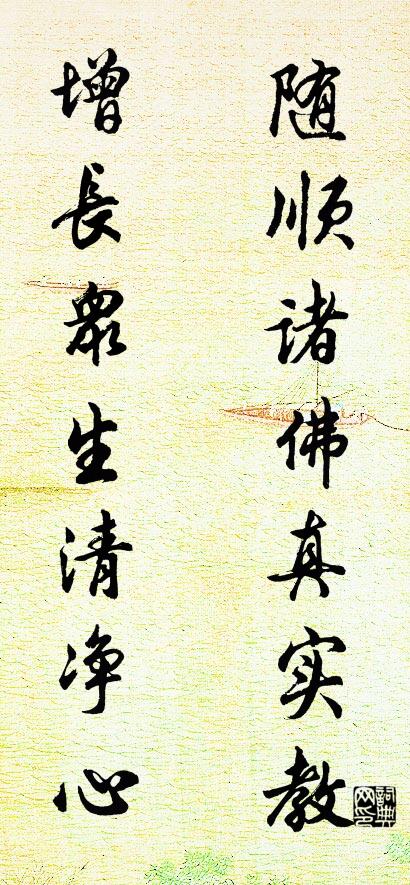 随顺诸佛真实教
增長衆生清净心
詞典
网印